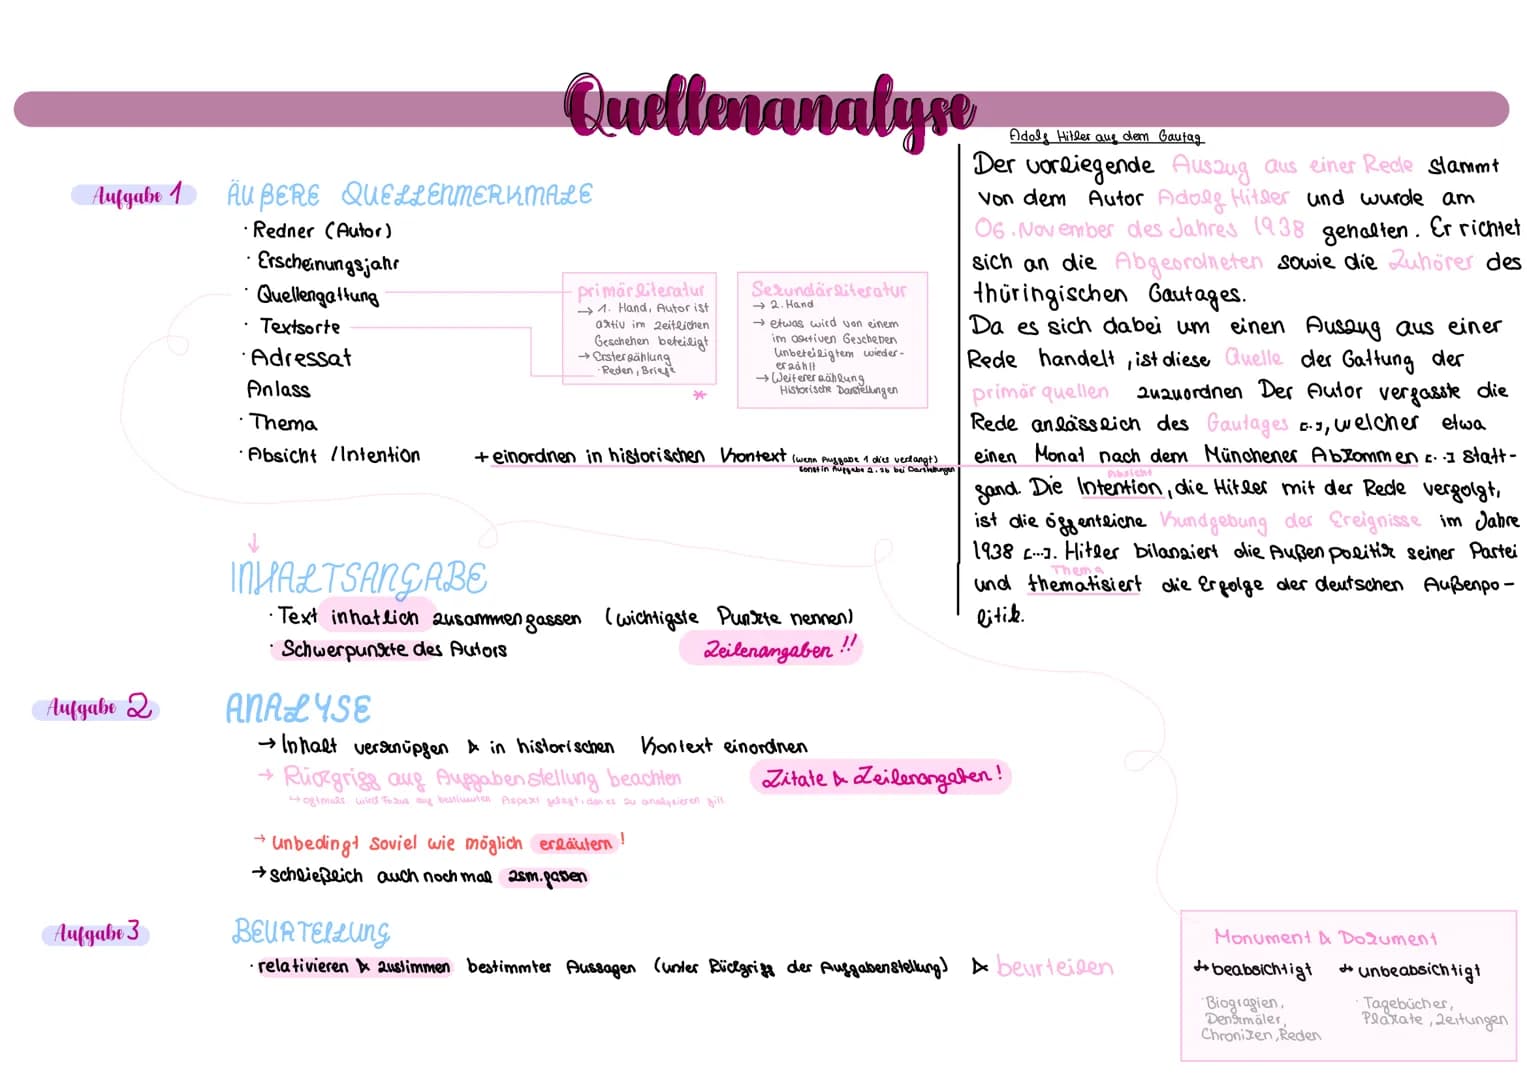 Quellenanalyse
Aufgabe 1
ÄUßERE QUELLENMERKMALE
· Redner (Autor)
· Erscheinungsjahr
· Quellengattung
· Textsorte
· Adressat
Anlass
· Thema
· Absicht / Intention
primärliteratur
→ 1. Hand, Autor ist
aktiv im zeitlichen
Geschehen beteiligt
→ Ersterzählung
· Reden, Briefe
*
Sekundärliteratur
→ 2. Hand
→ etwas wird von einem
im aktiven Geschehen
Unbeteiligtem wieder-
erzählt
→ Weitererzählung
Historische Darstellungen
+ einordnen in historischen Kontext (wenn Aufgabe 1 dies verlangt)
sonst in Aufgabe 2. zb bei Darstellungen
↓
INHALTSANGABE
· Text inhatlich zusammenfassen (wichtigste Punkte nennen)
· Schwerpunkte des Autors
Zeilenangaben !!
Aufgabe 2
ANALYSE
→ Inhalt verknüpfen & in historischen Kontext einordnen
→ Rückgriff auf Aufgabenstellung beachten
↳ oftmals wird Fokus auf bestimmten Aspekt gelegt, den es zu analysieren gilt
Zitate & Zeilenangaben !
→ Unbedingt soviel wie möglich erläutern !
→ schließlich auch noch mal zsm.fassen
Aufgabe 3
BEURTEILUNG
· relativieren & zustimmen bestimmter Aussagen (unter Rückgriff der Aufgabenstellung) & beurteilen
Adolf Hitler auf dem Gautag
Der vorliegende Auszug aus einer Rede stammt
von dem Autor Adolf Hitler und wurde am
06. November des Jahres 1938 gehalten. Er richtet
sich an die Abgeordneten sowie die Zuhörer des
thüringischen Gautages.
Da es sich dabei um einen Auszug aus einer
Rede handelt, ist diese Quelle der Gattung der
primärquellen zuzuordnen Der Autor verfasste die
Rede anlässlich des Gautages [..], welcher etwa
einen Monat nach dem Münchener Abkommen [...] statt-
fand. Die Intention, die Hitler mit der Rede verfolgt,
Absicht
ist die öffentliche Kundgebung der Ereignisse im Jahre
1938 [...]. Hitler bilanziert die Außenpolitik seiner Partei
Thema
und thematisiert die Erfolge der deutschen Außenpo-
litik.
Monument & Dokument
↳ beabsichtigt
↳ unbeabsichtigt
· Biografien,
Denkmäler,
Chroniken, Reden
· Tagebücher,
Plakate, Zeitungen